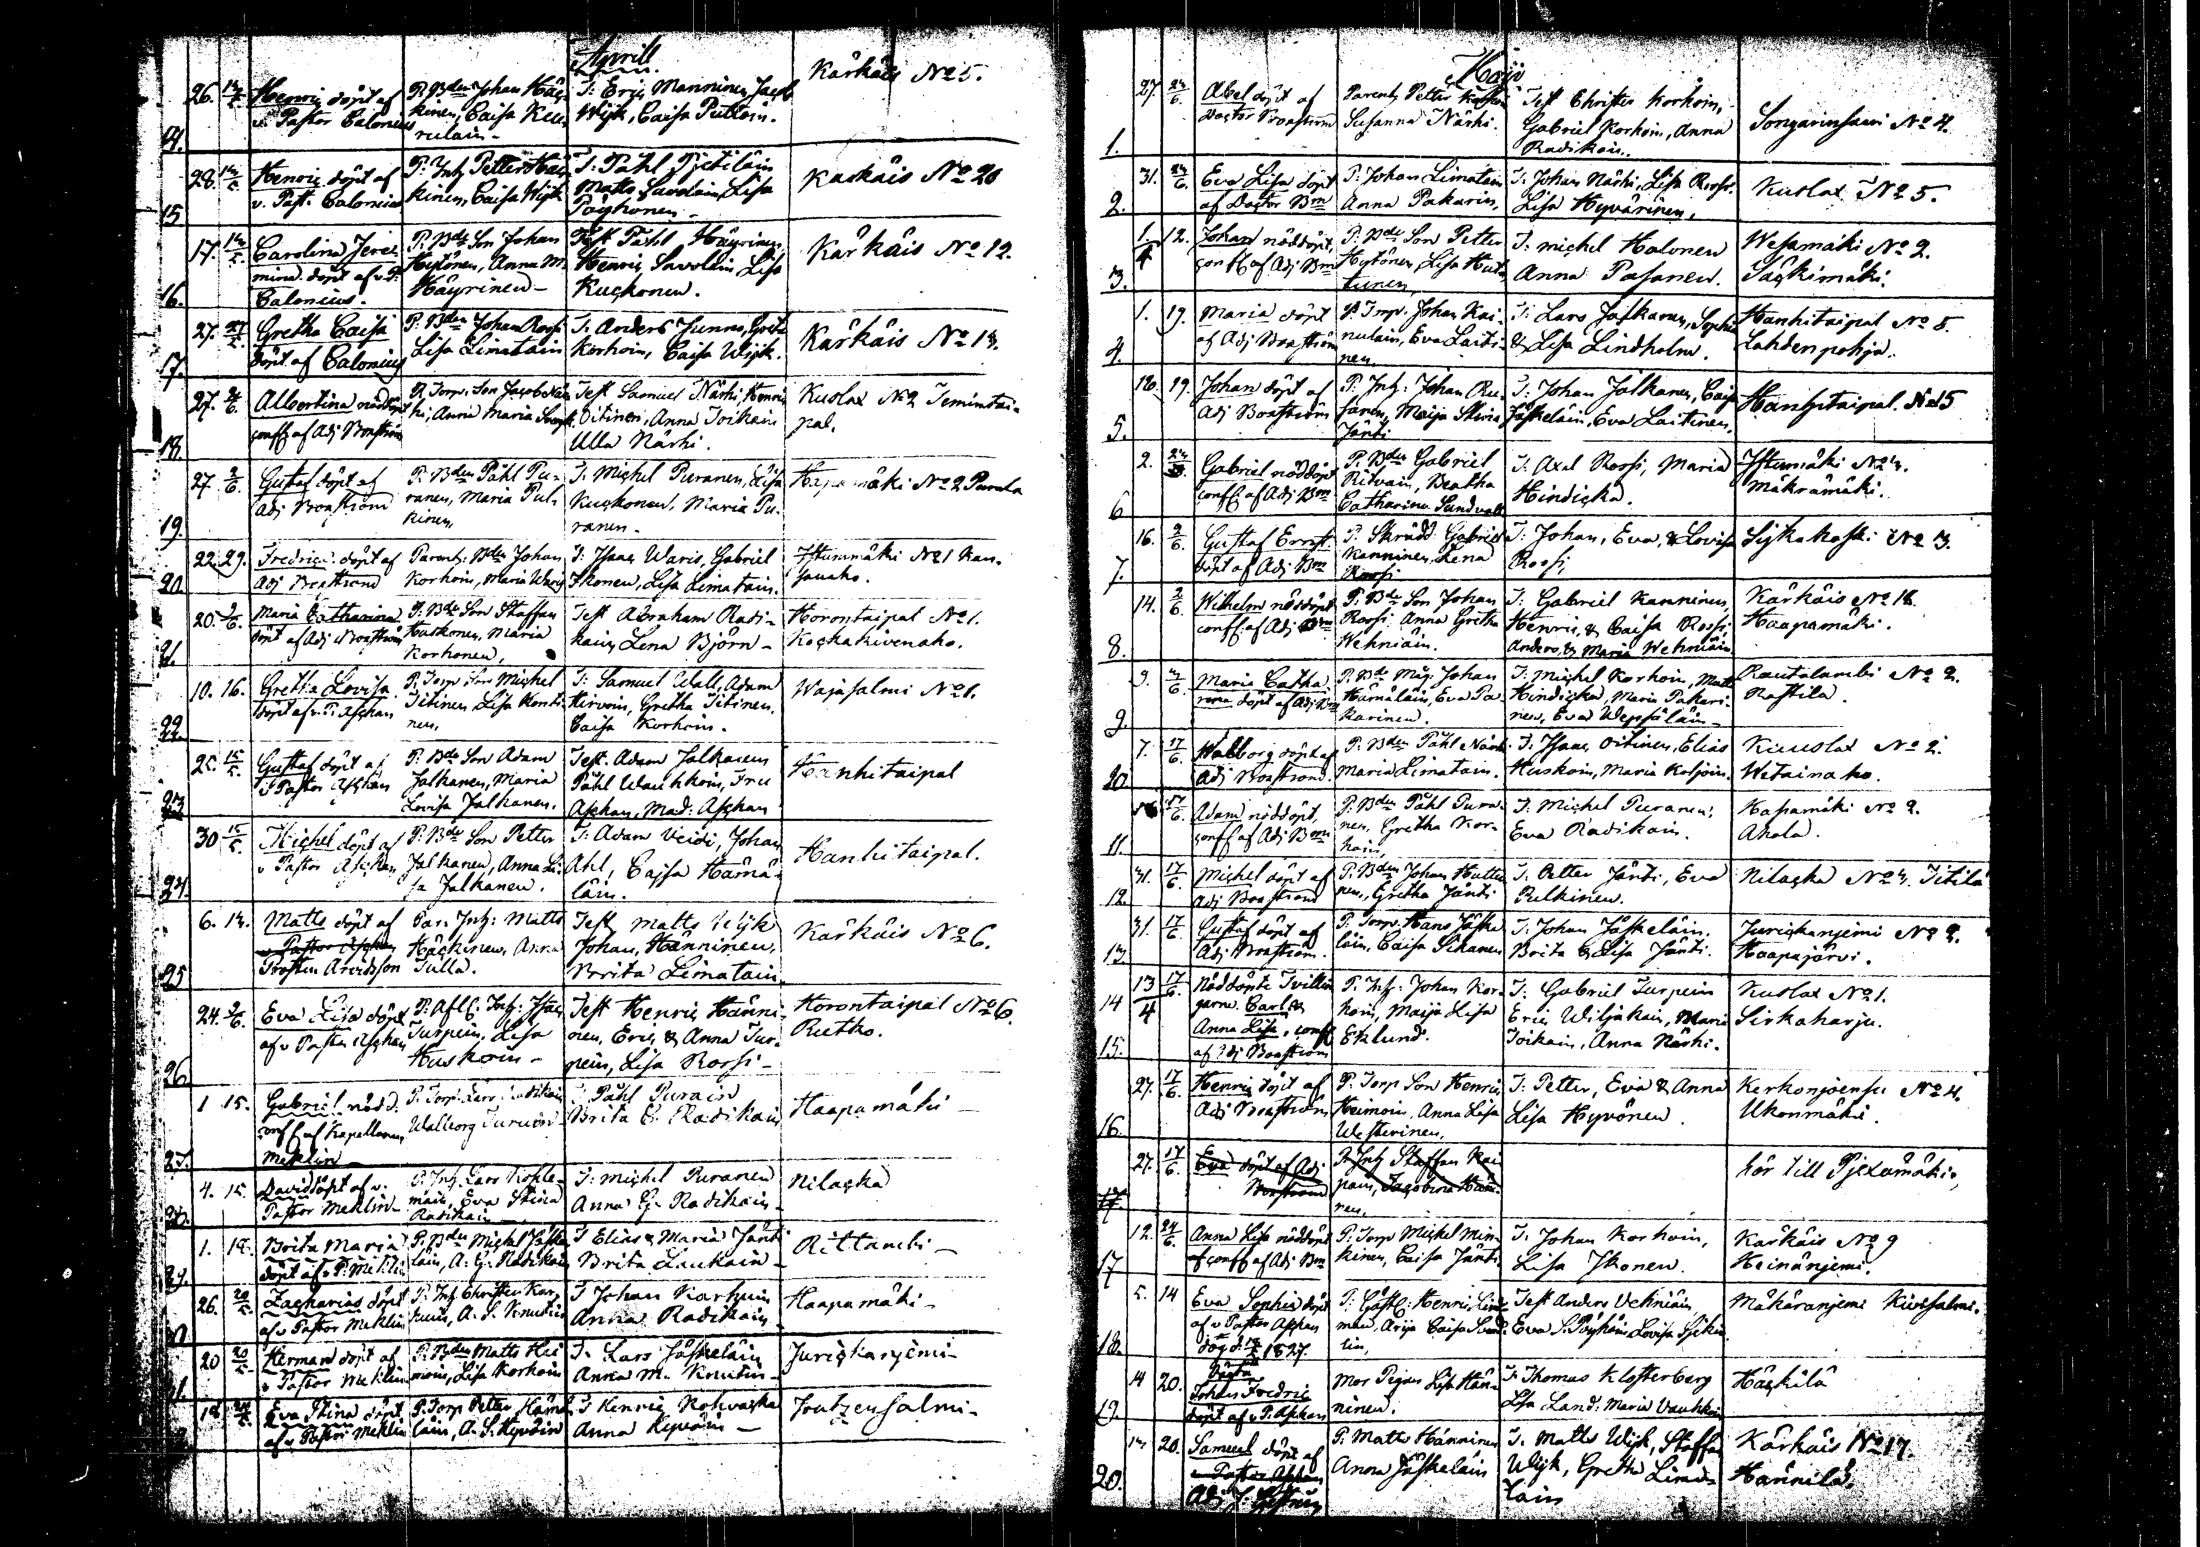 Aprill
14. 26. 14/5 Henric döpt af v. Pastor Calonius
P. Bden Johan Häckinen, Caisa Keurulain
T: Eric Manninen, Jacob Wijk, Caisa Puttoin.
Kärkäis No 5.
15 28. 14/5 Henric döpt af v. Past. Calonius
P: Inh Petter Häckinen, Caisa Wijk
T: Påhl Tjetiläin Matts Savolain, Lisa Pöyhonen
Karkäis No 20
16. 17. 14/5 Carolina döpt af v. P. Calonius.
P: Bde Son Johan Hytönen, Anna M. Häyrinen
Test Påhl Häyrinen, Henric Savolain, Lisa Kuckonen.
Kärkäis No 12.
17. 27. Gretha Caisa döpt af Calonius
P: Bden Johan Rossi Lisa Limatain
T: Anders Junnas, Greta Korhoin, Caisa Wijk.
Kärkäis No 13.
18. 27. 2/6. Albertina nöddöpt conff af Adj Bonström
P. Torp. Son Jacob Närhi, Anna Maria
Test Samuel Närhi, Henric Oitinen, Anna Toikain Ulla Närhi.
Kuolax No 2 Teminsaipal.
19. 27 2/6. Gustaf döpt af Adj Bonström
P. Bden Påhl Puranen, Maria Pulkinen
T: Michel Puranen, Lisa Kuckonen, Maria Puranen
Hapamäki No 2 Purala
20. 22. 29. Fredric döpt af Adj Bonström
Parent: Bden Johan Korhoin, Maria Waris
T: Isaac Waris, Gabriel Ikonen, Lisa Limatain.
Istunmäki No 1
21. 20. 2/6. Maria Catharina döpt af Adj Bonström
P: Bde Son Staffan Huskonen, Maria Korhonen,
Test Abraham Radikain, Lena Björn
Horontaipal No 1. Kockakivenaho.
22. 10. 16. Gretha Lovisa döpt af v. P. Aschan
P: Torp Son Michel Titinen Lisa Kontinen,
T: Samuel Wall, Adam Hirvoin, Gretha Titinen. Caisa Korhoin.
Wajasalmi No 1.
23 25. 15/5. Gustaf döpt af v Pastor Aschan
P: Bde Son Adam Jalkanen, Maria Lovisa Jalkanen.
Test. Adam Jalkanen Påhl Wauhkoin, Fru Aschan, Mad: Aschan
Hanhitaipal
24. 30 15/5. Michel döpt af v Pastor Aschan
P: Bde Son Petter Jalkanen, Anna Lisa Jalkanen.
T: Adam Veidi, Johan Ahl, Cajsa Hämäläin.
Hanhitaipal.
25 6. 14. Matts döpt af Prosten Arvidsson
Par. Inh: Matts Häckinen, Anna Tulla.
Test Matts Wijk Johan Hänninen, Brita Limatain
Kärkäis No 6.
26 24. 2/6. Eva Lisa döpt af v Pastor Aschan
Turpein, Lisa Huskoin
Test Henric Hänninen, Eric & Anna Turpein, Lisa Rossi
Horontaipal No 6. Rutko.
27. 1 15. Gabriel nödd. conff af Kapellanen Meklin
P. Torp: Lars Radikain Walborg Turunen
T: Påhl Purain Brita G. Radikain
Haapamäki
28. 4. 15. David döpt af v. Pastor Meklin
P. Inh. Lars Eva Stina Radikain
T: Michel Puranen Anna G. Radikain
Nilacka
29. 1. 18. Brita Maria döpt af v P: Meklin
P: Bden Michel Jäskeläin, A. G. Radikain
T Elias & Maria Jänti Brita Laukain
Rittambi
30 26. 20/5 Zacharias döpt af v Pastor Meklin
P: Inh Christer Karhuin, A. S. Knutin
T Johan Karhuin Anna Radikain
Haapamäki
31. 20 20/5 Herman döpt af v Pastor Meklin
P: Bden Matts Heimoin, Lisa Korhoin
T. Lars Jäskeläin Anna M. Knutin
Jurickaniemi
18 Eva Stina döpt af v Pastor Meklin
P. Torp Petter Hämäläin, A. S. Hyvöin
T Henric Rohvacka Anna Hyvöin
Joutzensalmi
Maji
1. 27. 24/6. Abel döpt af Bonström
Parent Petter Korhoin Susanna Närhi.
Test Christer Korhoin, Gabriel Korhoin, Anna Radikain.
Songarinsaari No 4.
2. 31. 24/6. Eva Lisa döpt af Bm
P. Johan Limatain Anna Pakarin,
T: Johan Närhi, Lisa Rossi. Lisa Hyvärinen,
Kuolax No 5.
3. 1/4 12. Johan nöddöpt, conff af Adj Bm
P. Bde Son Petter Hytönen, Lisa Hutunen
T: Michel Halonen Anna Pasanen.
Wesamäki No 2. Säckimäki.
4. 1. 19. Maria döpt af Adj Bonström
P. Torp. Johan Kainulain, Eva Laitinen
T: Lars Jäskanen, Sophi & Lisa Lindholm.
Hanhitaipal No 8. Lahdenpohja.
5. 10. 19. Johan döpt af Adj Bonström
P: Inh: Johan Rusänen, Maija Stina Jänti
T: Johan Jalkanen, Caisa Jäskeläin, Eva Laitinen,
Hanhitaipal. No 5
6 2. Gabriel nöddöpt conff. af Adj Bm
P. Bden Gabriel Ritvain, Beatha Catharina Sundvall
T: Axel Rossi, Maria Hindicka.
Istunmäki No 4. Mäkrämäki.
7. 16. 2/6. Gustaf Ernst döpt af Adj Bm
P: Skrädd Gabriel Kanninen, Lena Rossi
T: Johan, Eva, & Lovisa Rossi,
Sijkakoski No 3.
8. 14. 2/6. Wilhelm nöddöpt conff. af Adj Bm
P: Bde Son Johan Rossi, Anna Gretha Wehniäin.
T: Gabriel Kanninen, Henric, & Caisa Rossi, Anders & Maria Wehniäin
Kärkäis No 18. Haapamäki.
9. 9. Maria Catharina döpt af Adj Bm
P. Bde Måg Johan Hämäläin, Eva Pakarinen.
T: Michel Korhoin, Matts Hindicka, Maria Pakarinen, Eva Wepsäläin
Rautalambi No 2. Rastila.
10 7. 17/6. Walborg döpt af Adj Bonström.
P: Bden Påhl Närhi Maria Limatain.
T: Isaac Oitinen, Elias Huskoin, Maria Koljoin.
Kuuolax No 2. Witainaho.
11. 17/6. Adam nöddöpt, conff af Adj Bm
P: Bden Påhl Puranen, Gretha Korhoin,
T: Michel Puranen, Eva Radikain.
Hapamäki No 2. Ahola.
12. 31. 17/6. Michel döpt af Adj Bonström
P: Bden Johan Huttunen, Gretha Jänti
T. Petter Jänti, Eva Pulkinen.
Nilacka No 4. Titilä
13 31. 17/6. Gustaf döpt af Adj. Bonström.
P: Torp. Hans Jäskeläin, Caisa Sikanen
T. Johan Jäskeläin. Brita & Lisa Jänti.
Jurickaniemi No 2. Haapajärvi.
14 15. 13/4 17/6. Nöddöpte Tvillingarne. Carl & Anna Lisa, conff af Adj Bonström
P. Inh: Johan Korhoin, Maija Lisa Eklund.
T: Gabriel Turpein Eric Wiljakain, Maria Toikain, Anna Närhi.
Kuolax No 1. Sirkaharju.
16. 27. 17/6. Henric döpt af Adj Bonström
P. Torp Son Henric Heimoin, Anna Lisa Westerinen,
T: Petter, Eva & Anna Lisa Hyvönen.
Kerkonjoensu No 4. Ukonmäki.
17. 27. 17/6. Eva döpt af Adj Bonström
P. Inh Staffan Jacobina Hänninen,
hör till Pjexämäki,
17 12. 24/6. Anna Lisa nöddöpt conff af Adj Bm
P: Torp Michel Minkinen, Caisa Jänti,
T. Johan Korhoin, Lisa Ikonen.
Kärkäis No 9 Heinäniemi.
18. 5. 14 Eva Sophia döpt af v Pastor Aschan död d. 1827.
Henric Lindman,
Test Anders Vehniäin, Eva S. Pöyhöin Lovisa
Mäkäräniemi Kivisalmi.
19. 14 20. Oächta Johan Fredric döpt af v. P. Aschan
Mor Pigan Lisa Hänninen.
T: Thomas Klosterberg Lisa Land: Maria Vauhkoin
Häckilä
20. 14 20. Samuel döpt af
P. Matts Hänninen Anna Jäskeläin
T. Matts Wijk, Staffan Wijk, Gretha Limatain
Kärkäis No 17. Hännilä.